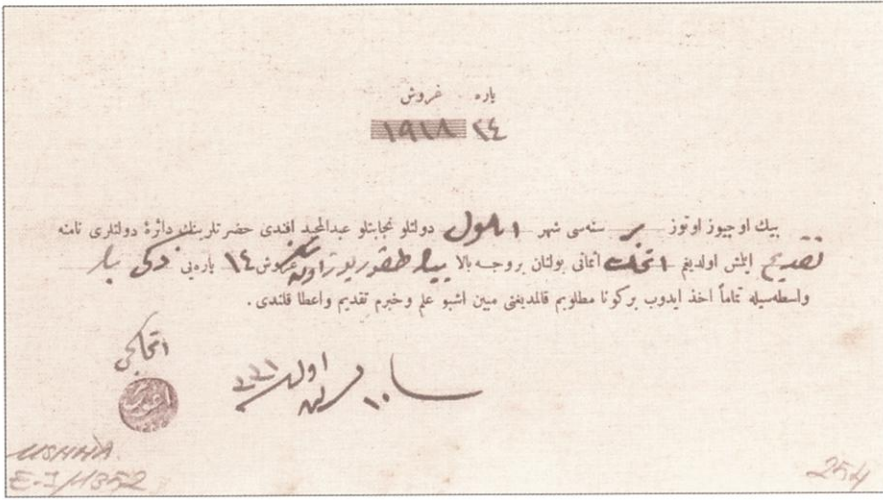 پاره غروش
٢٤ ١٩١٨
بيك اوچيوز اوتوز بر سنه‌سى شهر ايلول دولتلو نجابتلو عبدالمجيد افندى حضرتلرينك دائرۀ دولتلرى نامنه
تقديم ايلمش اولديغم اتمك اثمانى بولنان بروجه بالا بيك طقوزيوز اون سكز غروش ١٤ پاره‌يى
واسطه‌سيله تماماً اخذ ايدوب بركونا مطلوبم قالمديغنى مبين اشبو علم و خبرم تقديم واعطا قلندى .
اتمكجى
١٠ تشرين اول ٣٣١
USHHA.
E-I/1352
254